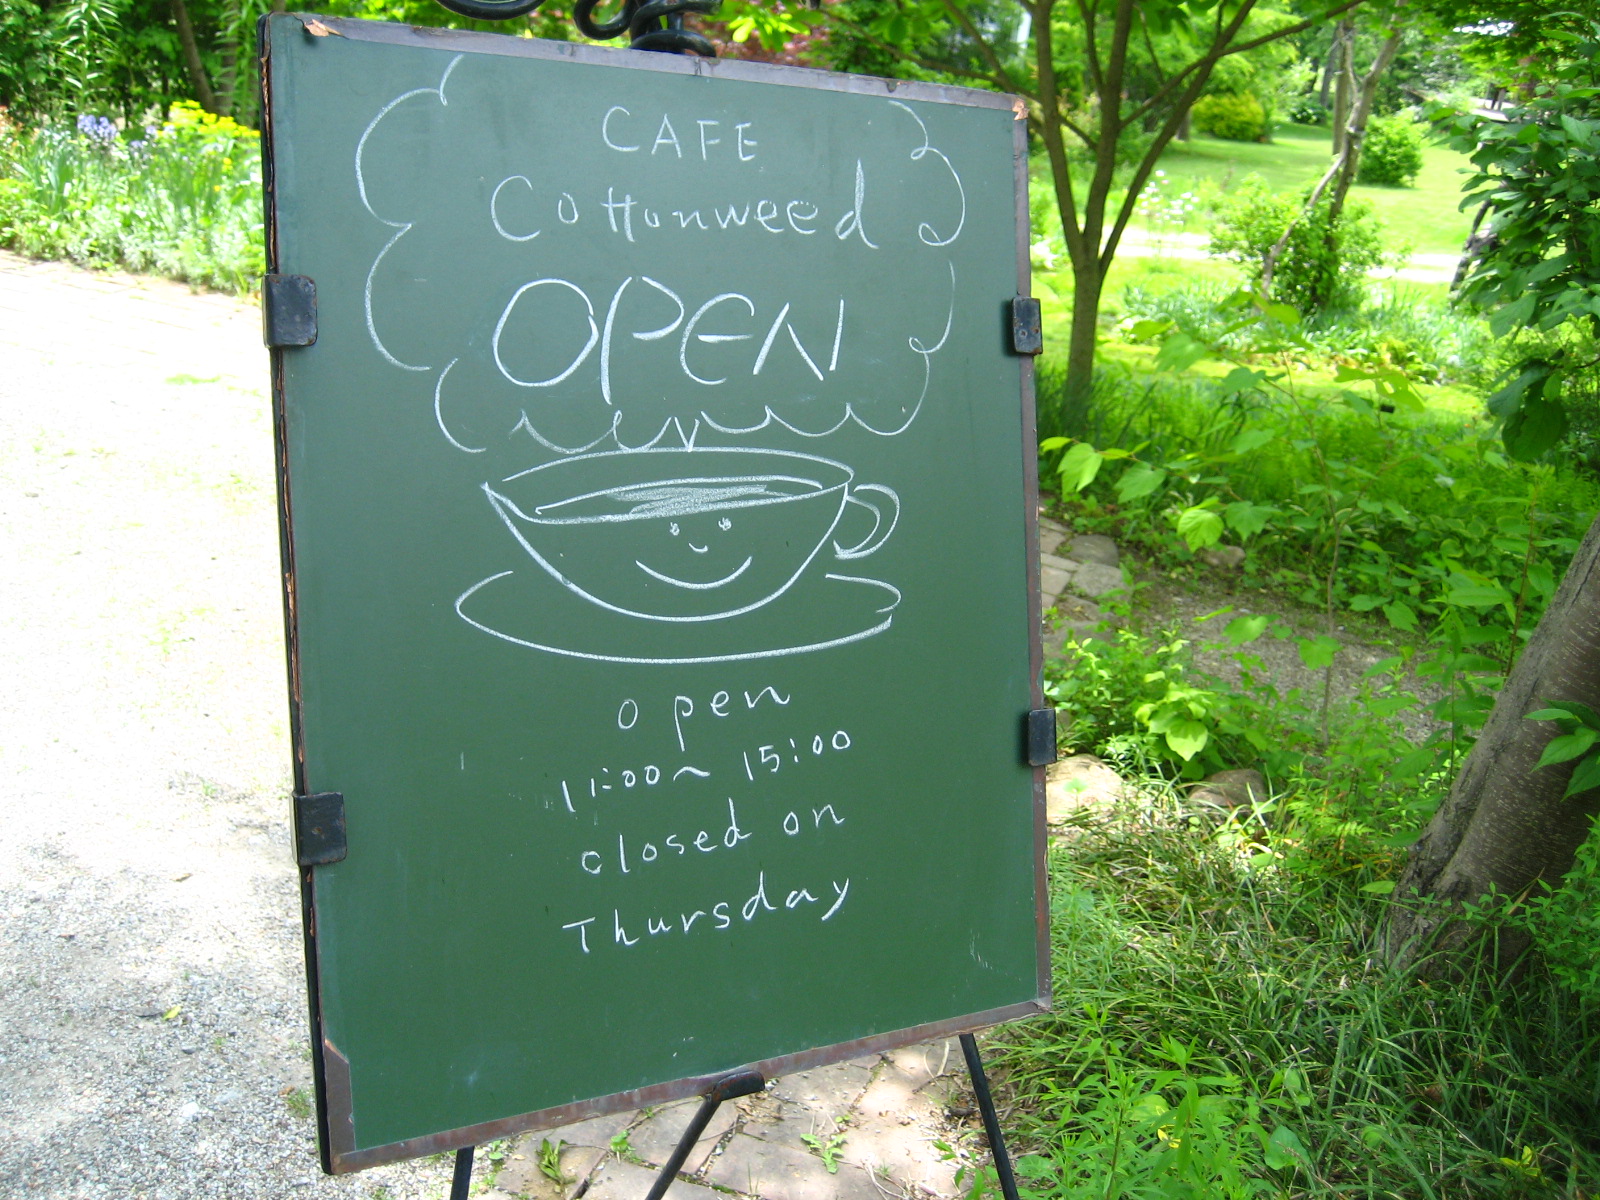 CAFE
Cottonweed
OPEN
open
11:00~15:00
closed on
Thursday